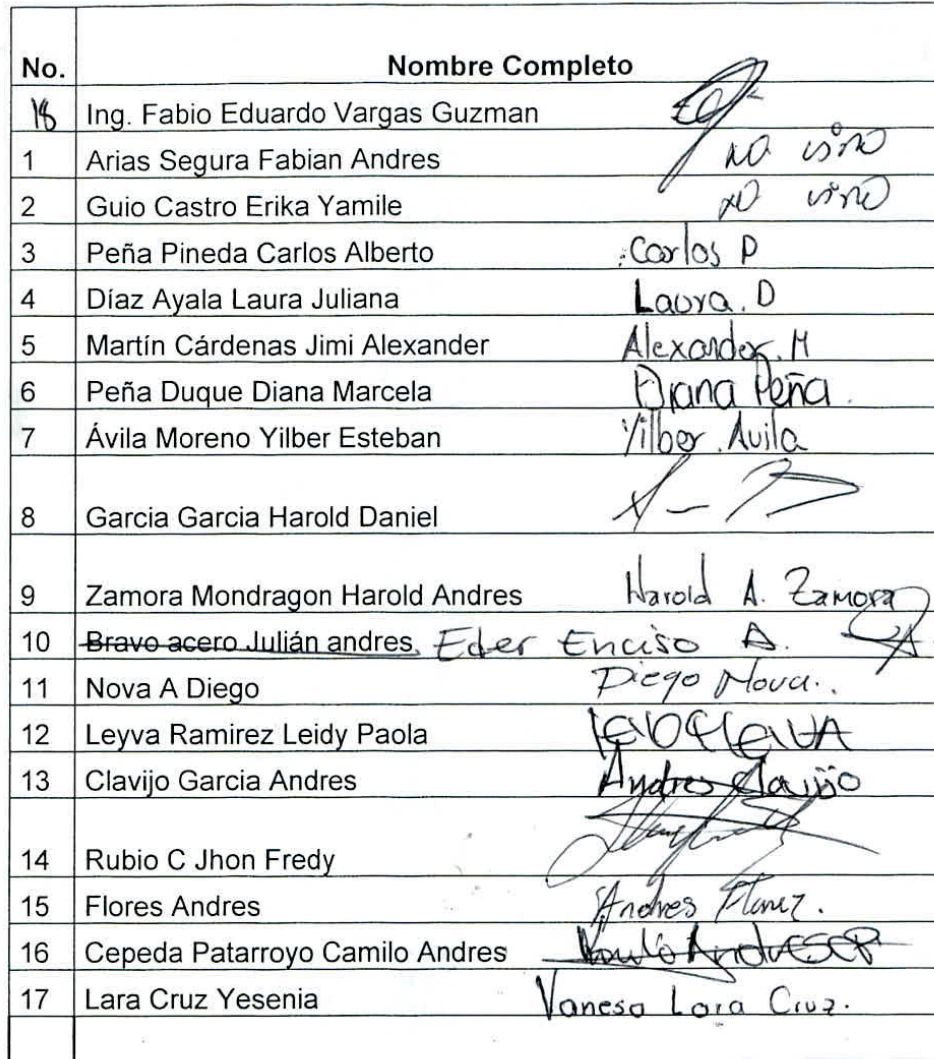 No. Nombre Completo
18 Ing. Fabio Eduardo Vargas Guzman
1 Arias Segura Fabian Andres NO vino
2 Guio Castro Erika Yamile NO vino
3 Peña Pineda Carlos Alberto Carlos P
4 Díaz Ayala Laura Juliana Laura. D
5 Martín Cárdenas Jimi Alexander Alexander. M
6 Peña Duque Diana Marcela Diana Peña.
7 Ávila Moreno Yilber Esteban Yilber. Avila
8 Garcia Garcia Harold Daniel
9 Zamora Mondragon Harold Andres Harold A. Zamora
10 Bravo acero Julián andres Eder Enciso A.
11 Nova A Diego Diego Nova.
12 Leyva Ramirez Leidy Paola
13 Clavijo Garcia Andres Andres Clavijo
14 Rubio C Jhon Fredy
15 Flores Andres Andres
16 Cepeda Patarroyo Camilo Andres
17 Lara Cruz Yesenia Vanesa Lara Cruz.